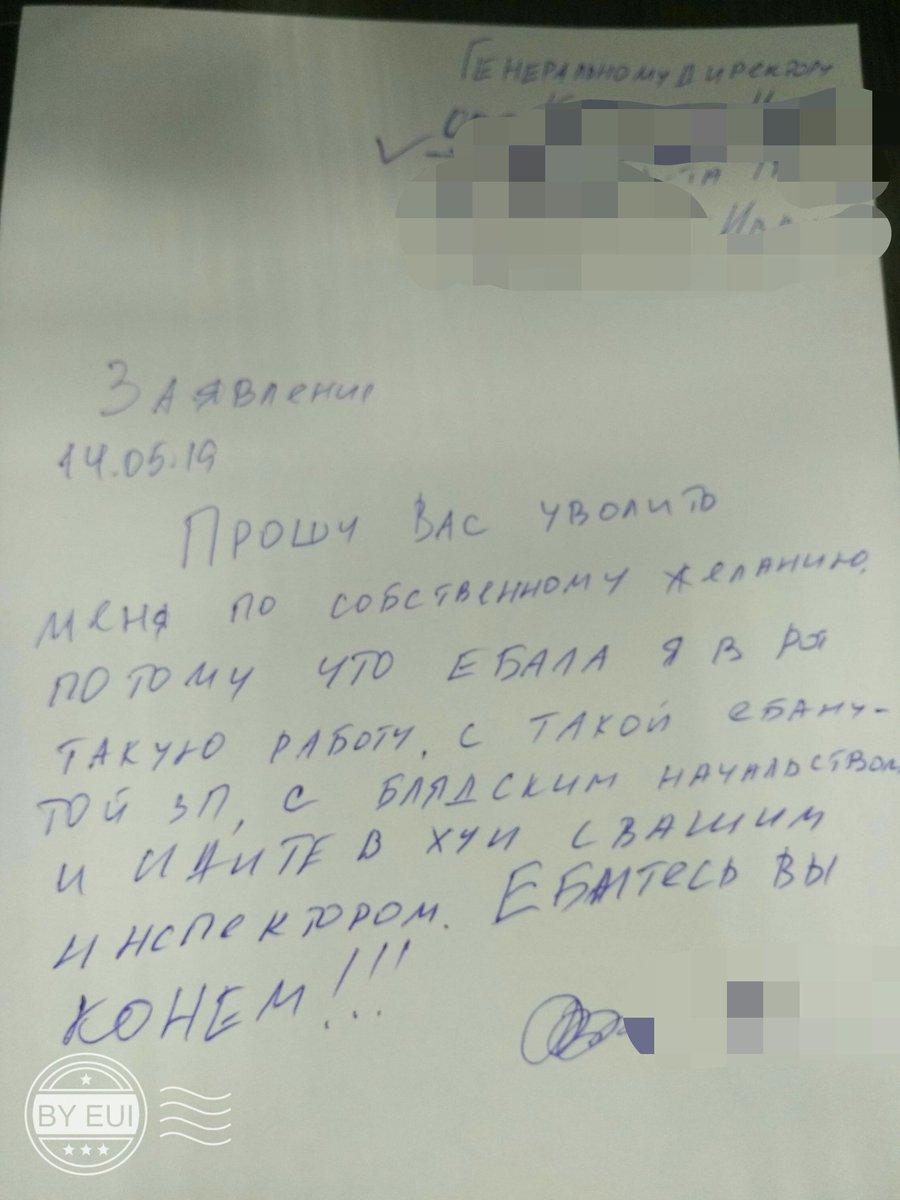 Генеральному директору
Заявление
14.05.19
Прошу Вас уволить
меня по собственному желанию,
потому что ебала я в рот
такую работу, с такой ебану-
той зп, с блядским начальством
и идите в хуй с вашим
инспектором. Ебитесь вы
конем!!!
BY EUI